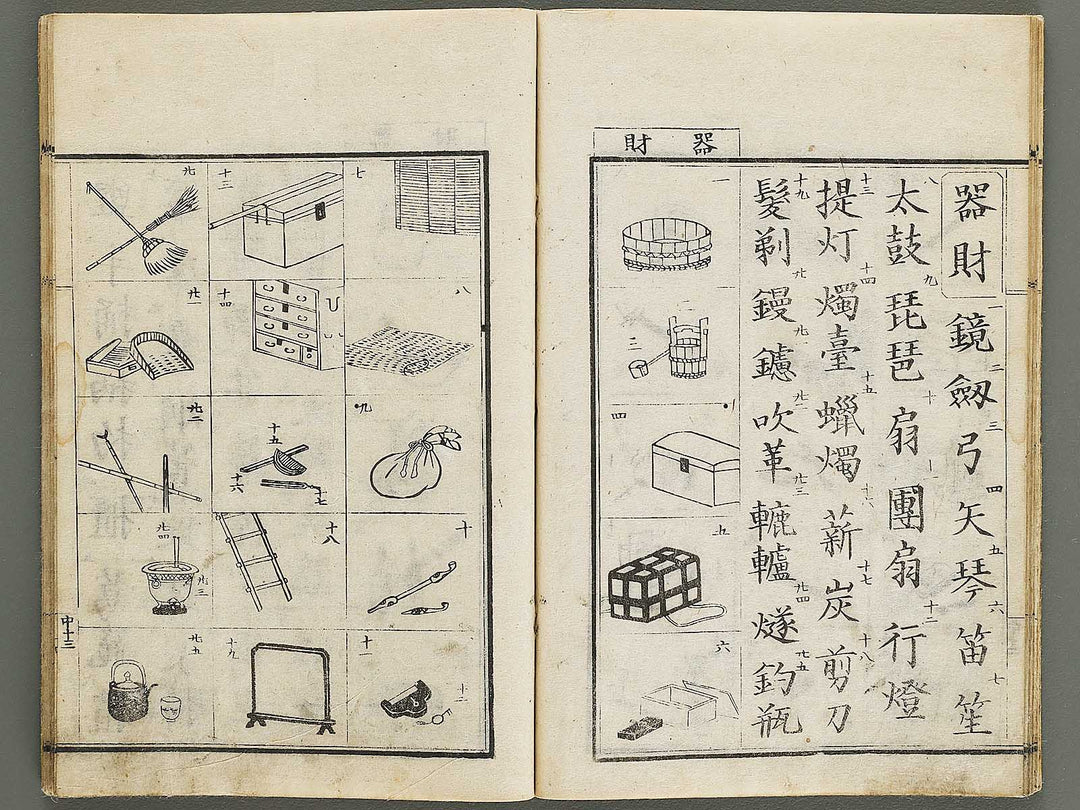 器財
器財
一鏡二劔三弓四矢五琴六笛七笙
八太鼓九琵琶十扇十一團扇十二行燈
十三提灯十四燭臺十五蠟燭十六薪十七炭十八剪刀
十九髮剃廿鏝廿一鑢廿二吹革廿三轆轤廿四燧廿五釣瓶
一
二
三
四
五
六
七
八
九
十
十一
十二
十三
十四
十五
十六
十七
十八
十九
廿
廿一
廿二
廿三
廿四
廿五
中十三